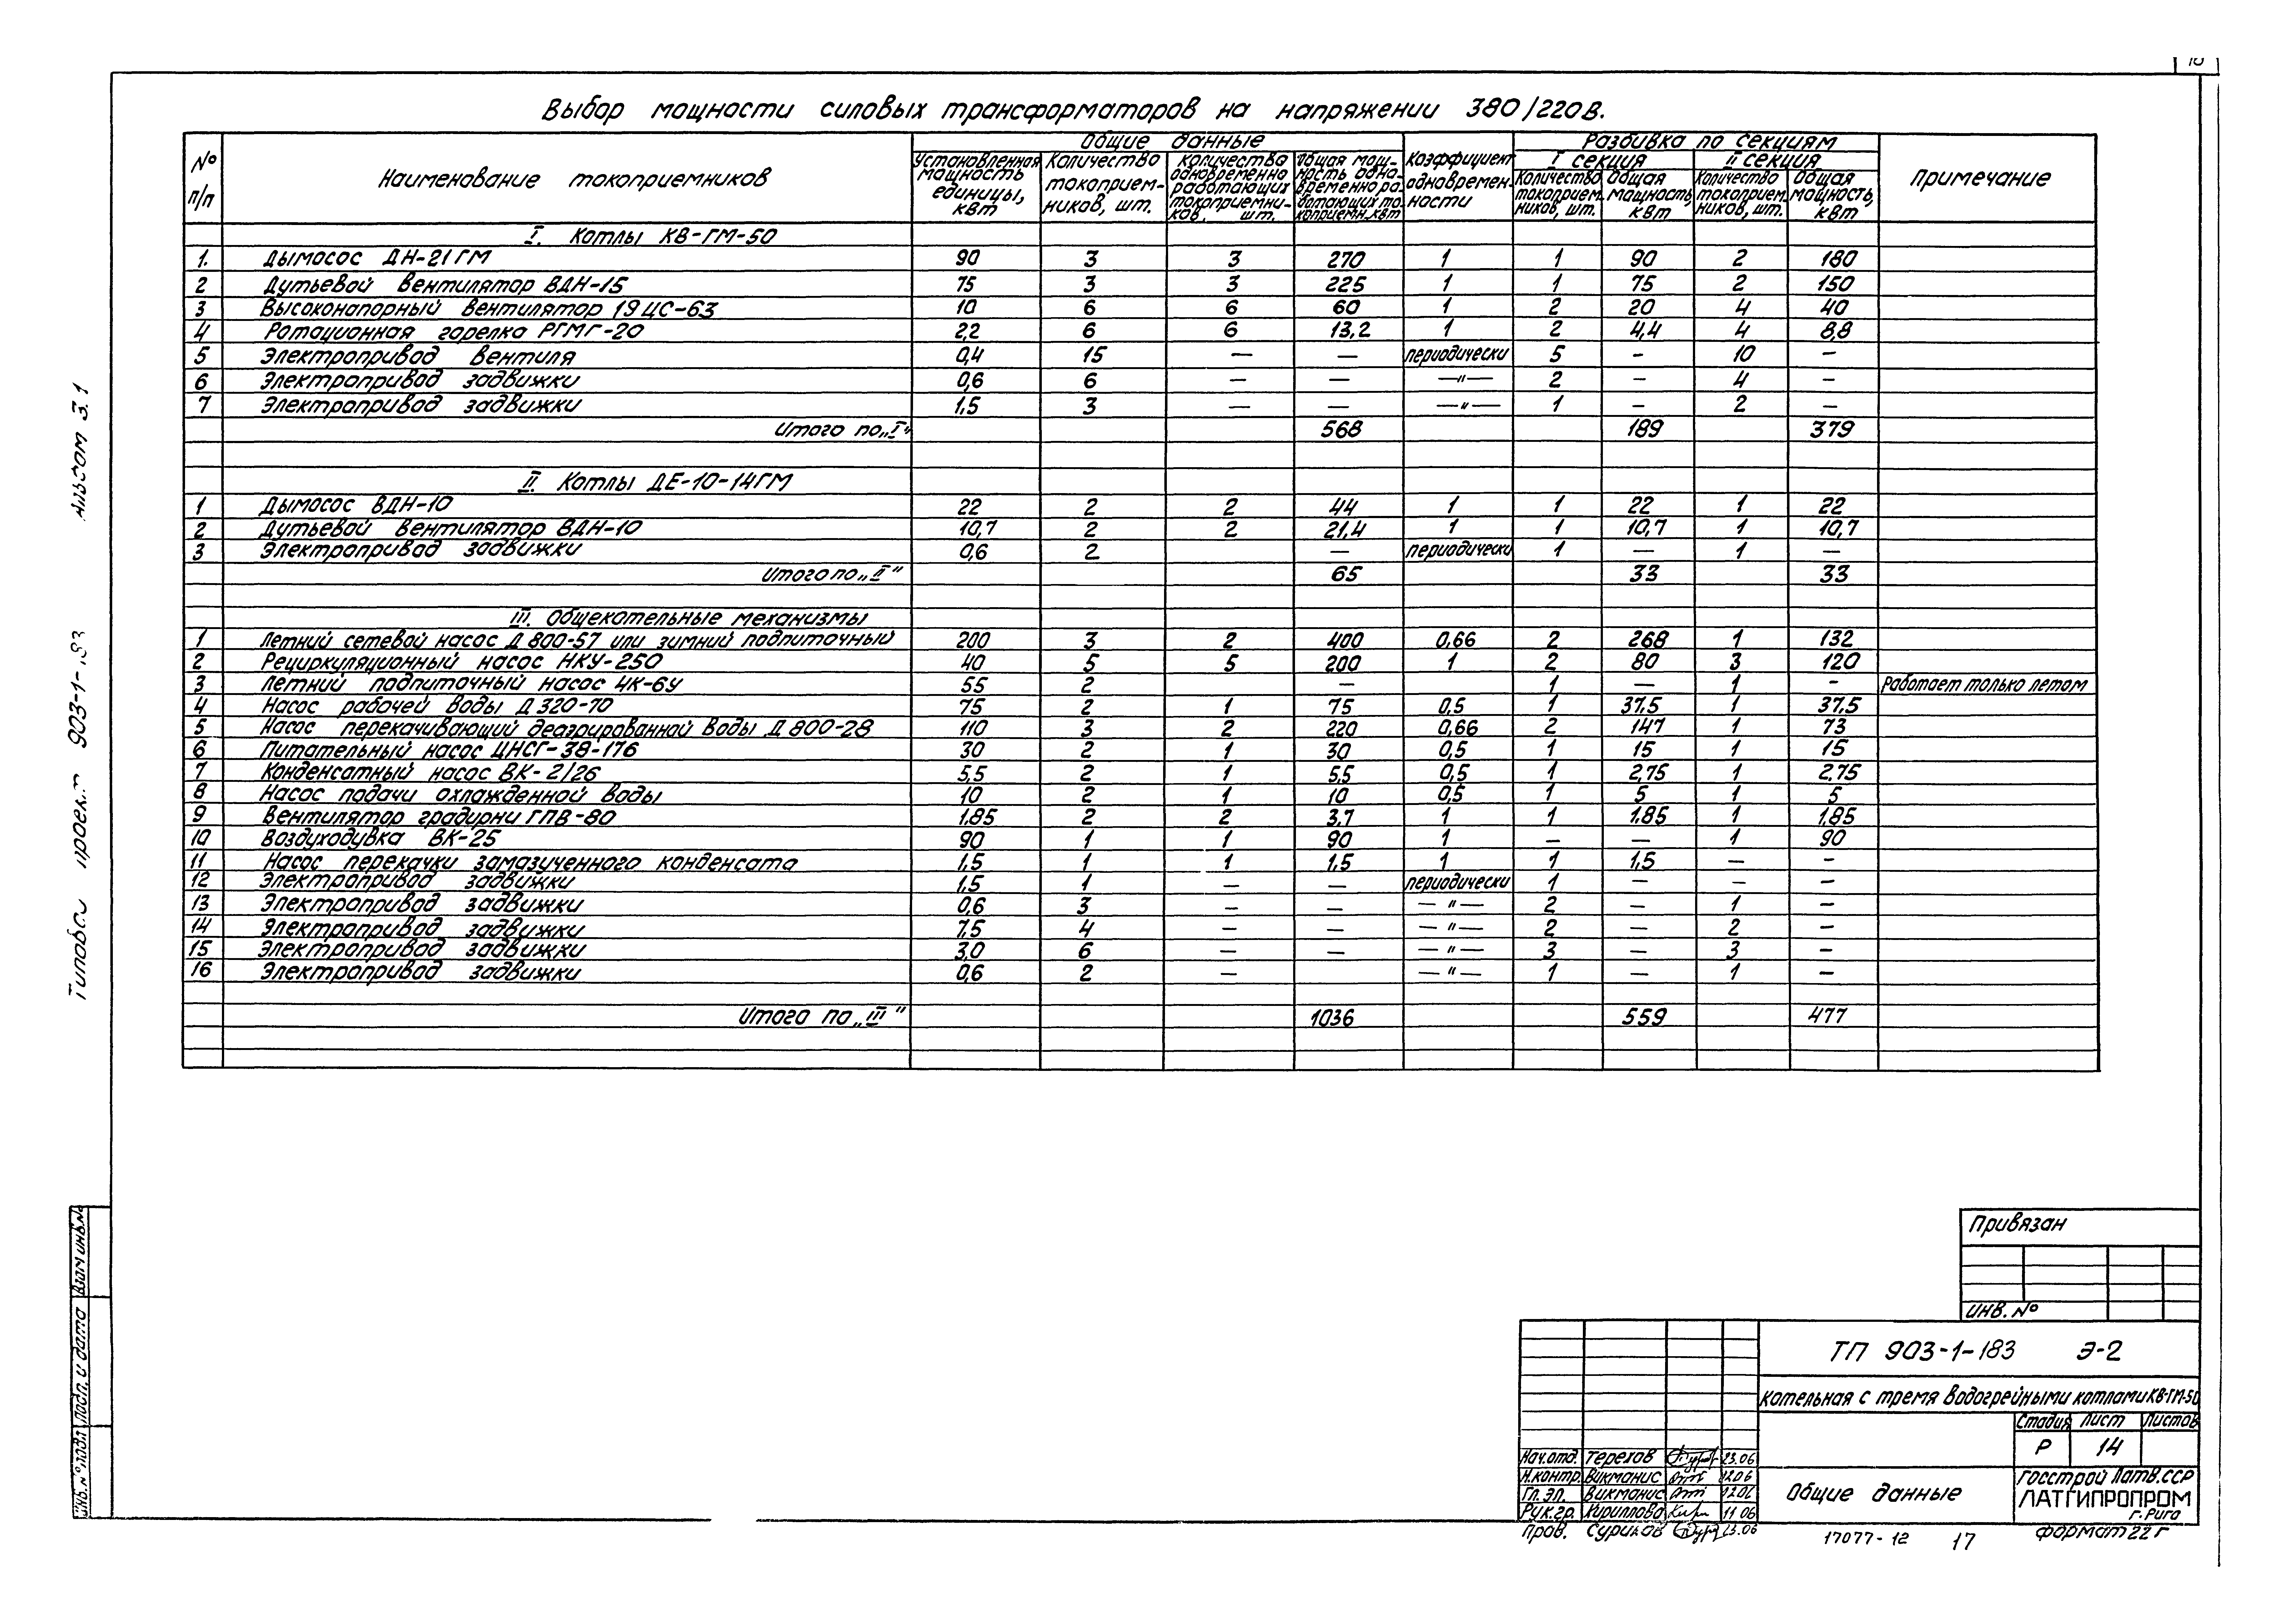 Выбор мощности силовых трансформаторов на напряжении 380/220В.
№ п/п | Наименование токоприемников | Общие данные | Коэффициент одновремен-ности | Разбивка по секциям | Примечание
Установленная мощность единицы, квт | Количество токоприем-ников, шт. | Количество одновременно работающих токоприемни-ков, шт. | Общая мощ-ность одно-временно ра-ботающих то-коприемн. квт | I секция | II секция
Количество токоприем. ников, шт. | Общая мощность, квт | Количество токоприем. ников, шт. | Общая мощность, квт
I. Котлы КВ-ГМ-50
1. Дымосос ДН-21ГМ 90 3 3 270 1 1 90 2 180
2 Дутьевой вентилятор ВДН-15 75 3 3 225 1 1 75 2 150
3 Высоконапорный вентилятор 19ЦС-63 10 6 6 60 1 2 20 4 40
4 Ротационная горелка РГМГ-20 2,2 6 6 13,2 1 2 4,4 4 8,8
5 Электропривод вентиля 0,4 15 — — периодически 5 - 10 -
6 Электропривод задвижки 0,6 6 — — —"— 2 - 4 -
7 Электропривод задвижки 1,5 3 — — —"— 1 - 2 -
Итого по „I" 568 189 379
II. Котлы ДЕ-10-14ГМ
1 Дымосос ВДН-10 22 2 2 44 1 1 22 1 22
2 Дутьевой вентилятор ВДН-10 10,7 2 2 21,4 1 1 10,7 1 10,7
3 Электропривод задвижки 0,6 2 — периодически 1 — 1 —
Итого по „II" 65 33 33
III. Общекотельные механизмы
1 Летний сетевой насос Д 800-57 или зимний подпиточный 200 3 2 400 0,66 2 268 1 132
2 Рециркуляционный насос НКУ-250 40 5 5 200 1 2 80 3 120
3 Летний подпиточный насос 4К-6У 55 2 — 1 — 1 - Работает только летом
4 Насос рабочей воды Д 320-70 75 2 1 75 0,5 1 37,5 1 37,5
5 Насос перекачивающий деаэрированной воды Д 800-28 110 3 2 220 0,66 2 147 1 73
6 Питательный насос ЦНСГ-38-176 30 2 1 30 0,5 1 15 1 15
7 Конденсатный насос ВК-2/26 5,5 2 1 5,5 0,5 1 2,75 1 2,75
8 Насос подачи охлажденной воды 10 2 1 10 0,5 1 5 1 5
9 Вентилятор градирни ГПВ-80 1,85 2 2 3,7 1 1 1,85 1 1,85
10 Воздуходувка ВК-25 90 1 1 90 1 — — 1 90
11 Насос перекачки замазученного конденсата 1,5 1 1 1,5 1 1 1,5 — -
12 Электропривод задвижки 1,5 1 — — периодически 1 — - -
13 Электропривод задвижки 0,6 3 — — —"— 2 — 1 -
14 Электропривод задвижки 7,5 4 — — —"— 2 — 2 -
15 Электропривод задвижки 3,0 6 — — —"— 3 — 3 -
16 Электропривод задвижки 0,6 2 — —"— 1 — 1 -
Итого по „III" 1036 559 477
Альбом 3.1
Типовой проект 903-1-183
Взам инв.№
Подп. и дата
Инв.№ подл
Привязан
Инв. №
ТП 903-1-183 Э-2
Котельная с тремя водогрейными котлами КВ-ГМ-50
Стадия Лист Листов
Р 14
Нач.отд. Терехов 23.06
Н.контр. Викманис 12.06
Гл. эл. Викманис 12.06
Рук.гр. Кириллова 11 06
Пров. Суриков 13.06
Общие данные
Госстрой Латв.ССР
ЛАТГИПРОПРОМ
г. Рига
17077-12 17
Формат 22 г